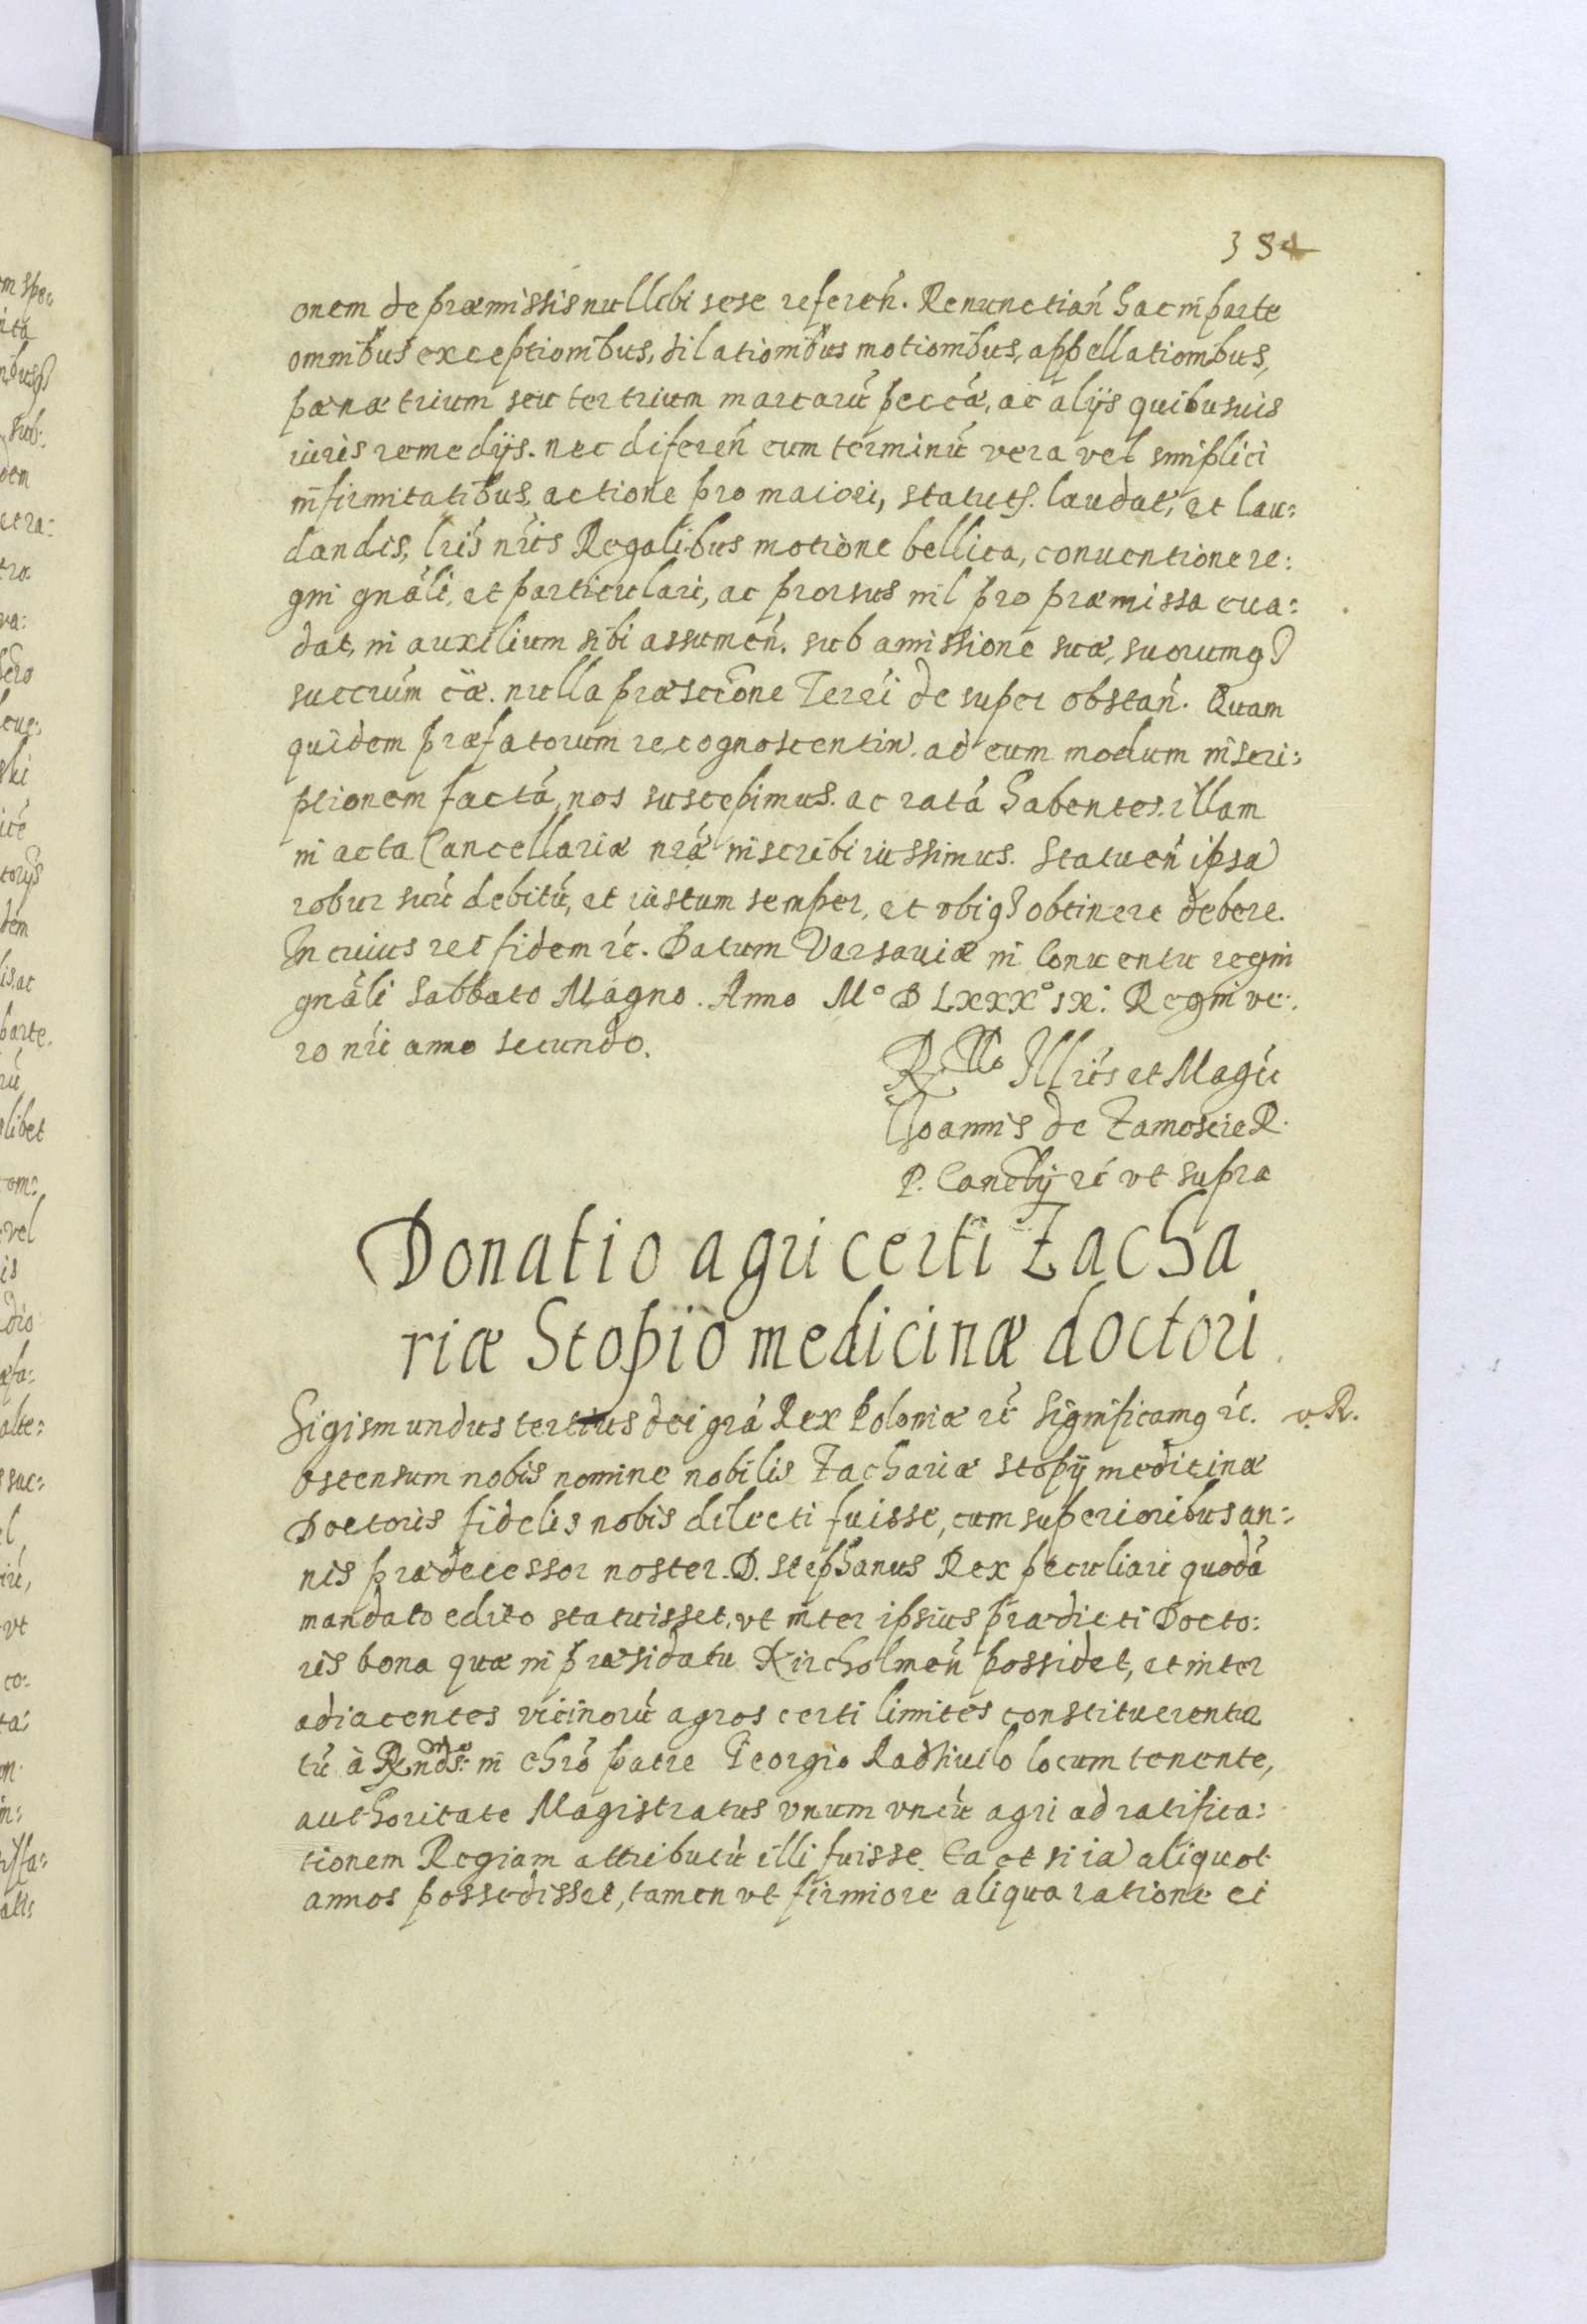 384
onem de præmissis nullibi sese referen̄. Renunctian̄ hac in parte
omnibus exceptionibus, dilationibus motionibus, appellationibus,
pænæ trium seu ter trium marcarū peccā, ac alijs quibusuis
iuris remedijs. nec diferen̄ eum terminū vera vel simplici
infirmitatibus, actione pro maiori, statut̄. laudat̄, et lau:
dandis, lr̄is nr̄is Regalibus motione bellica, conuentione re:
gni gnāli, et particulari, ac prorsus nil pro præmissa eua:
dat, in auxilium sibi assumen̄. sub amissione suæ, suorumq3
succrum̄ cǣ. nulla præscrōne Terrī de super obstan̄. Quam
quidem præfatorum recognoscentiū. ad eum modum inscri:
ptionem factā, nos suscepimus. ac ratā habentes. illam
in acta Cancellariæ nrǣ inscribi iussimus. Statuen̄ ipsā
robur suū debitū, et iustum semper, et vbiq3 obtinere debere.
In cuius rei fidem rc̄. Datum Varsauiæ in Conuentu regni
gnāli Sabbato Magno. Anno M° D LXXX° IX: Regni ve:
ro nr̄i anno secundo.
Rllo Illris̄ et Magcī
Joannis de Zamoscie R.
P. Cancrij rc̄ vt supra
Donatio agri certi Zacha
riæ Stopio medicinæ doctori
Sigismundus tertius dei grā Rex Poloniæ rc̄ Significamq rc̄. v. R.
ostensum nobis nomine nobilis Zachariæ Stopij medicinæ
Doctoris fidelis nobis dilecti fuisse, cum superioribus an:
nis prædecessor noster. D. Stephanus Rex peculiari quodā
mandato edito statuisset, vt inter ipsius prædicti Docto:
ris bona quæ in præsidatu Kircholmen̄ possidet, et inter
adiacentes vicinorū agros certi limites constituerentur
tū à Rndsmo: in chrō patre Georgio Radziuilo locum tenente,
authoritate Magistratus vnum vncū agri ad ratifica:
tionem Regiam attributū illi fuisse. Ea et si iā aliquot
annos possedisset, tamen vt firmiore aliqua ratione ei